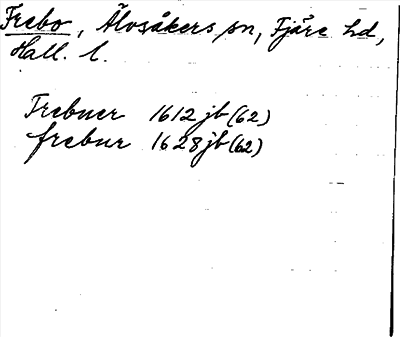 Frebo, Älvsåkers sn, Fjäre hd,
Hall. l.
Frebuer 1612 jb (62)
frebur 1628 jb (62)